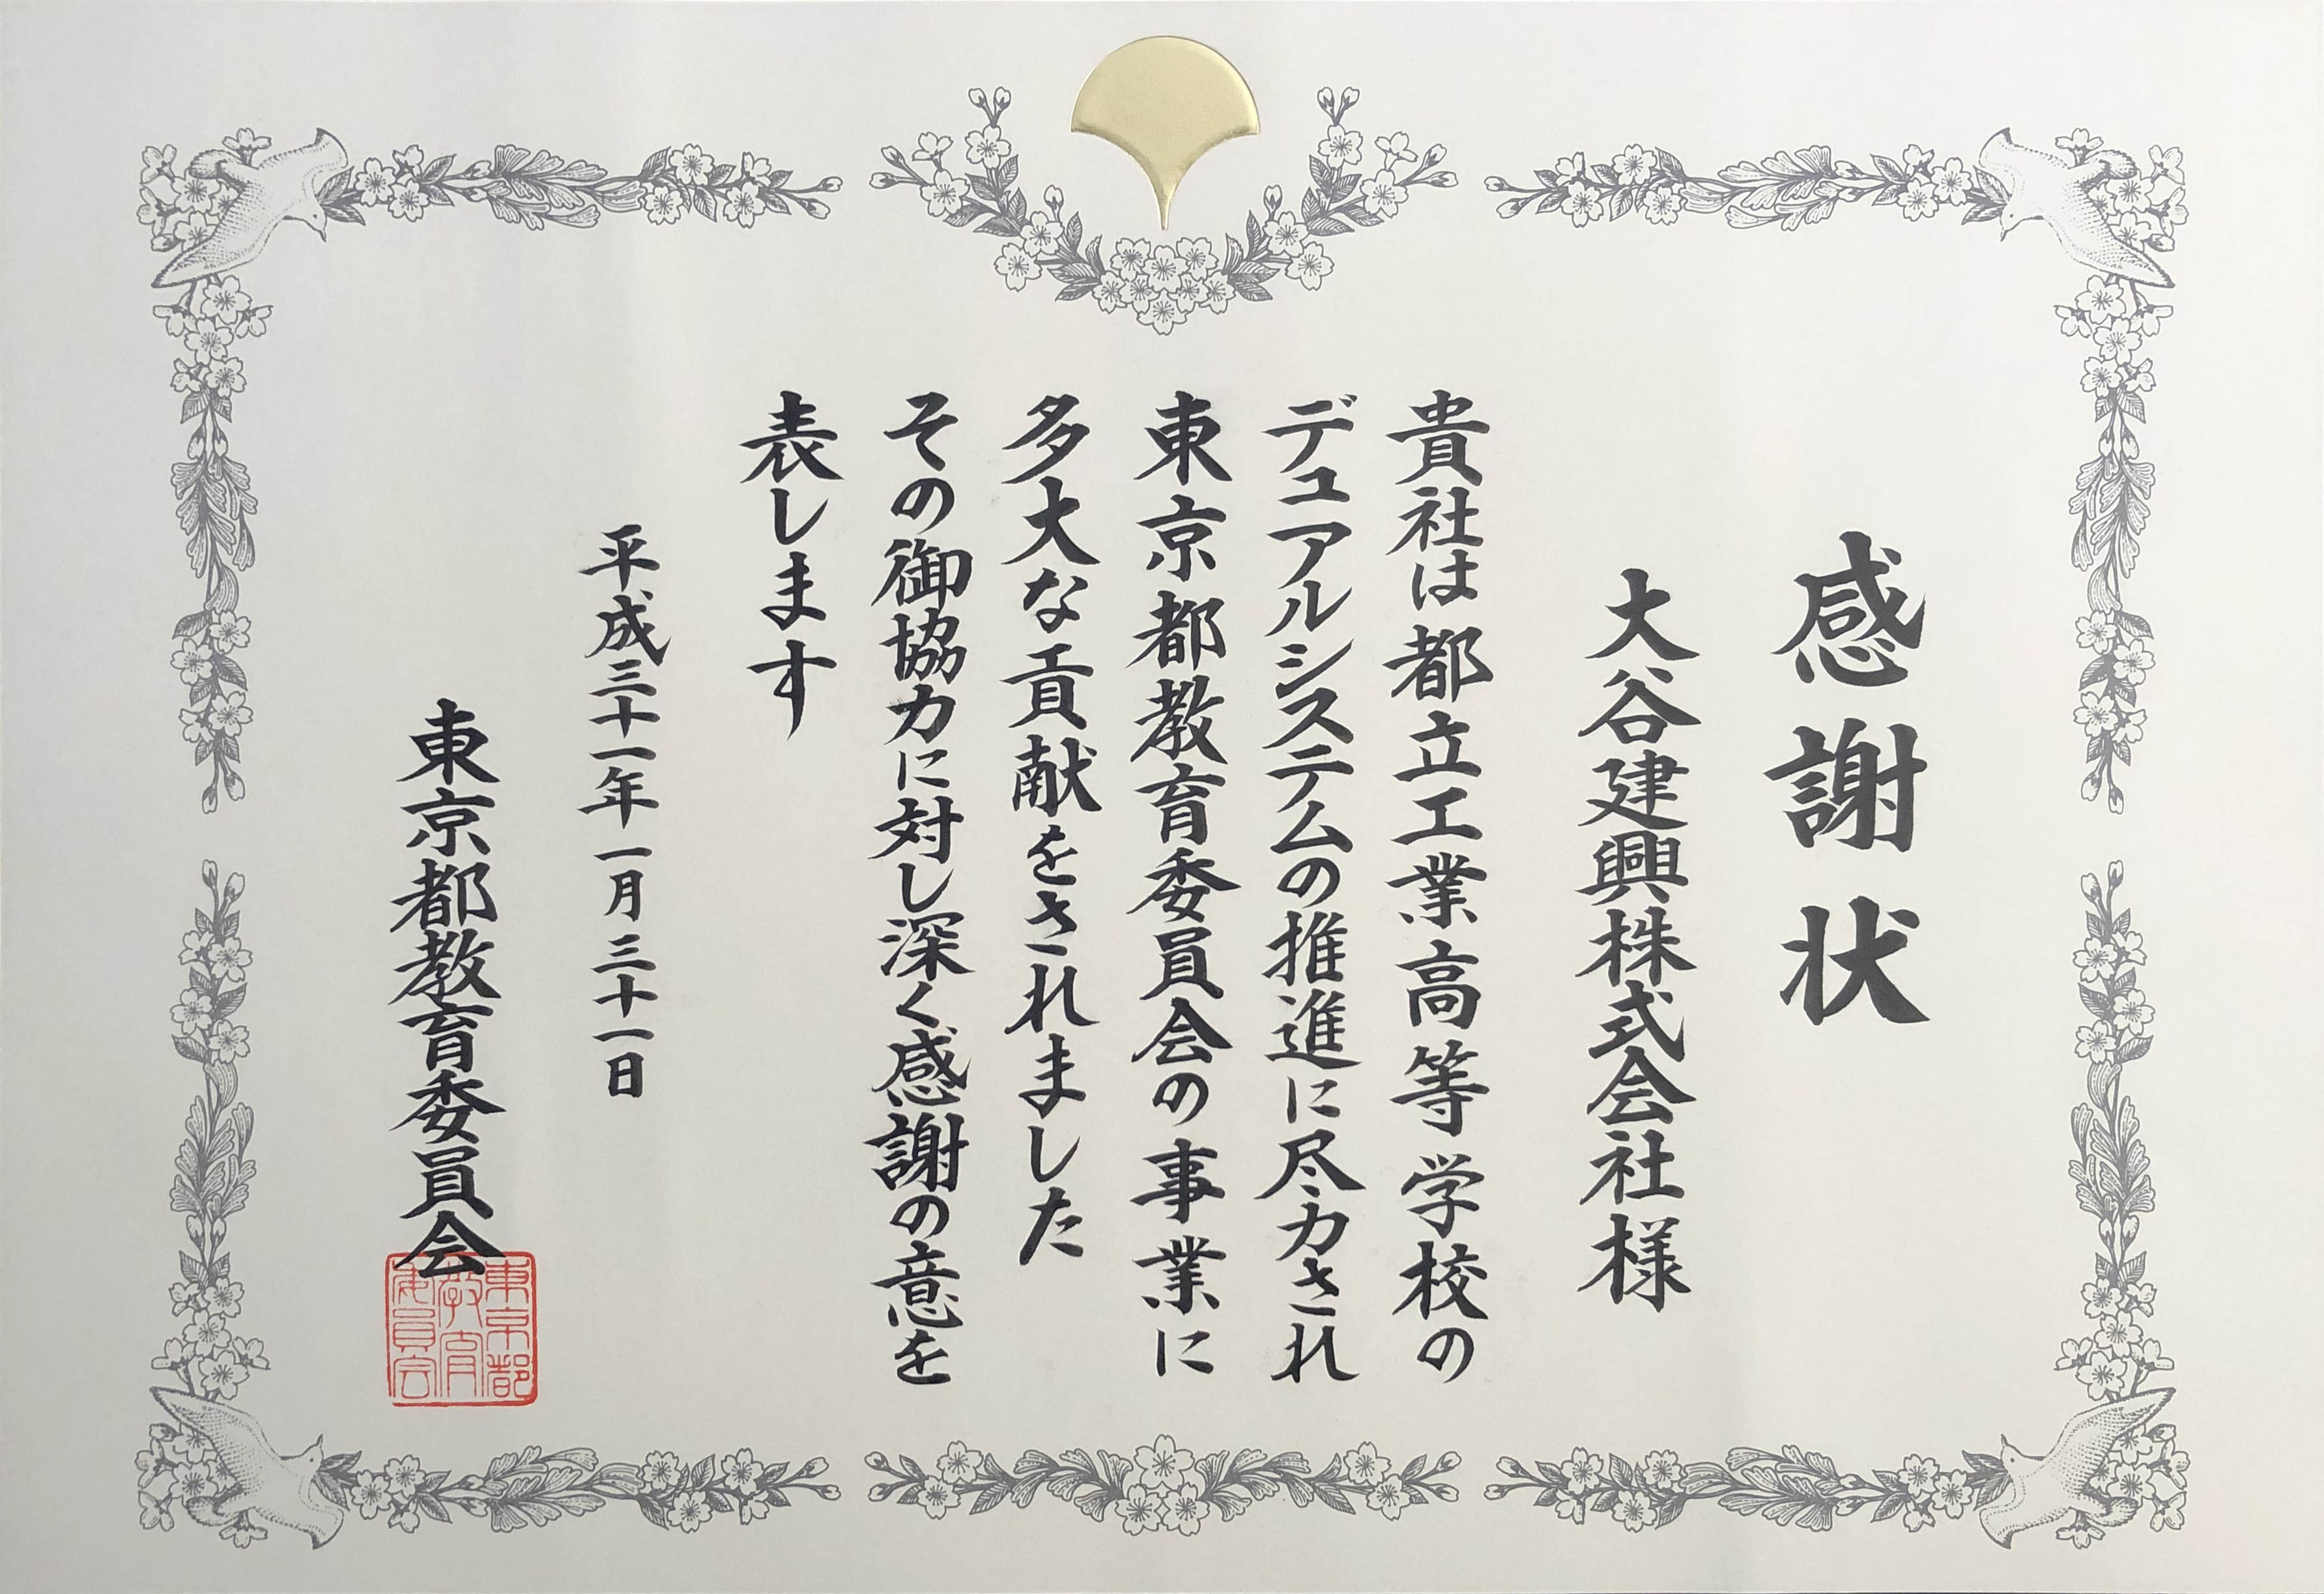 感謝状
大谷建興株式会社様
貴社は都立工業高等学校の
デュアルシステムの推進に尽力され
東京都教育委員会の事業に
多大な貢献をされました
その御協力に対し深く感謝の意を
表します
平成三十一年一月三十一日
東京都教育委員会
東京都
教育
委員会